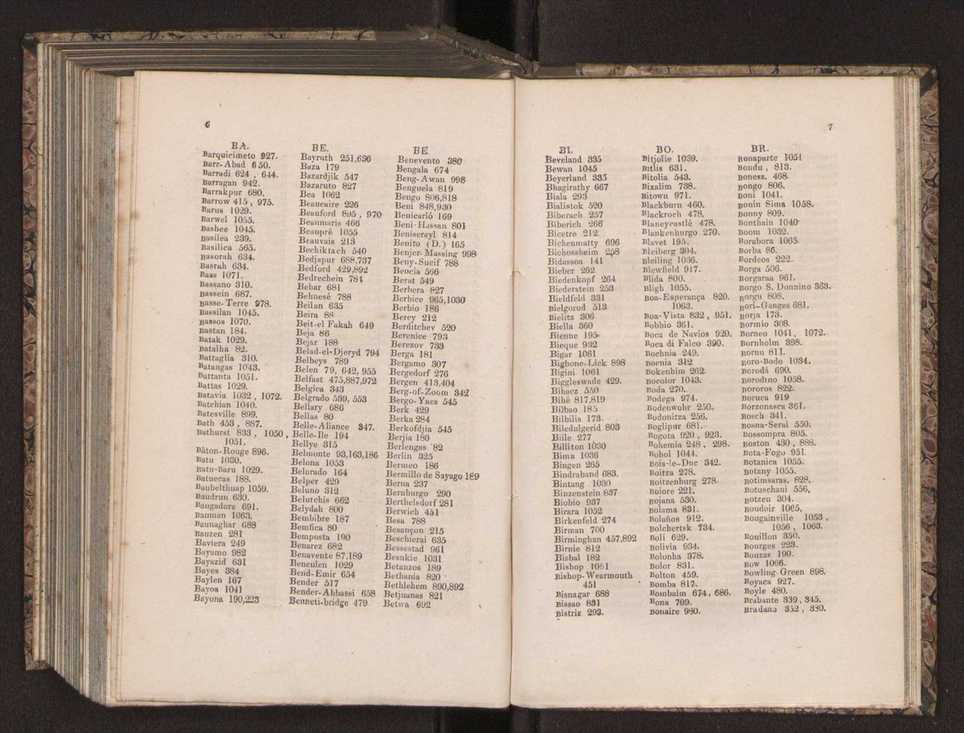 6
BA.
Barquicimeto 927.
Barr-Abad 650.
Barradi 624, 644.
Barragan 942.
Barrakpur 680.
Barrow 415, 975.
Barus 1029.
Barwel 1055.
Bashee 1045.
Basilea 239.
Basilica 565.
Basorah 634.
Basrah 634.
Bass 1071.
Bassano 310.
Bassein 687.
Basse-Terre 978.
Bassilan 1045.
Bassos 1070.
Bastan 184.
Batak 1029.
Batalha 82.
Battaglia 310.
Batangas 1043.
Battanta 1051.
Battas 1029.
Batavia 1032, 1072.
Batchian 1040.
Batesville 899.
Bath 453, 887.
Bathurst 833, 1050,
1051.
Bâton-Rouge 896.
Batu 1030.
Batu-Baru 1029.
Batuecas 188.
Baubelthuap 1059.
Baudrun 630.
Baugadore 691.
Bauman 1063.
Baunaghar 688
Bauzen 281
Baviera 249
Bayamo 982
Bayazid 631
Bayes 384
Baylen 167
Bayos 1041
Bayona 190,223
BE.
Bayruth 251,636
Baza 179
Bazardjik 547
Bazaruto 827
Bea 1062
Beaucaire 226
Beauford 895, 970
Beaumaris 466
Beaupré 1055
Beauvais 213
Bechiktach 540
Bedjapur 688,737
Bedford 429,892
Bedrechein 784
Behar 681
Behnesé 788
Beilan 635
Beira 88
Beit-el Fakah 649
Beja 86
Bejar 188
Belad-el-Djeryd 794
Belbeys 789
Belen 79, 642, 955
Belfast 475,887,972
Belgica 343
Belgrado 539, 553
Bellary 686
Bellas 80
Belle-Aliance 347.
Belle-Ile 194
Bellye 315
Belmonte 93,163,186
Belona 1053
Belorado 164
Belper 429
Beluno 312
Belutchis 662
Belydah 800
Bembibre 187
Bemfica 80
Bemposta 190
Benarez 682
Benavente 87,189
Benculen 1029
Bend-Emir 654
Bender 517
Bender-Abbassi 658
Benneti-bridge 479
BE
Benevento 380
Bengala 674
Beng-Awan 998
Benguela 819
Bengo 806,818
Beni 848,930
Benicarló 169
Beni-Hassan 801
Beniserayl 814
Benito (D.) 165
Benjer-Massing 998
Beny-Sueif 788
Beocia 566
Berat 549
Berbera 827
Berbice 965,1030
Berbio 186
Berey 212
Berditchev 520
Berenice 793
Berezov 733
Berga 181
Bergamo 307
Bergedorf 276
Bergen 413,404
Berg-of-Zoom 342
Bergo-Yaca 545
Berk 429
Berka 284
Berkofdjia 545
Berjia 180
Berlengas 82
Berlin 325
Bermeo 186
Bermillo de Sayago 189
Berna 237
Bernburgo 290
Berthelsdorf 281
Berwich 451
Besa 788
Besançon 215
Bescherai 635
Bessestad 961
Besukie 1031
Betanzos 189
Bethania 820
Bethlehem 890,892
Betjuanas 821
Betwa 692
7
BI.
Beveland 335
Bewan 1045
Beyerland 335
Bhagirathy 667
Biala 293
Bialistok 520
Biberach 257
Biberich 266
Bicetre 212
Bichenmatty 696
Bichossheim 258
Bidassoa 141
Bieber 262
Biedenkopf 264
Biederstein 253
Bieldfeld 331
Bielgorod 513
Bielitz 306
Biella 360
Bienne 195
Bieque 932
Bigar 1061
Bighone-Lick 898
Bigini 1061
Biggleswade 429.
Bihacz 550
Bihé 817,819
Bilbao 185
Bilbilis 173.
Biledulgerid 803
Bille 277
Billiton 1030
Bima 1036
Bingen 265
Bindraband 683.
Bintang 1030
Binzenstein 837
Biobio 937
Birara 1052
Birkenfeld 274
Birman 700
Birminghan 457,892
Birnie 812
Bisbal 182
Bishop 1061
Bishop-Wearmouth
451
Bisnagar 688
Bissao 831
Bistriz 293.
BO.
Bitjolie 1039.
Bitlis 631.
Bitolia 543.
Bixalim 738.
Bitown 971.
Blackburn 460.
Blackroch 478.
Blaneycastlé 478.
Blankenburgo 270.
Blavet 195.
Bleiberg 304.
Bleiling 1036.
Blewfield 917.
Blida 800.
Bligh 1055.
Boa-Esperança 820.
1063.
Boa-Vista 832, 951.
Bobbio 361.
Boca de Navios 920.
Boca di Falco 390.
Bochnia 249.
Bocnia 312
Bokenhim 262.
Bocolor 1043.
Boda 270.
Bodega 974.
Bodenwuhr 250.
Bodonitza 256.
Boglipur 681.
Bogota 920, 923.
Bohemia 248, 298.
Bohol 1044.
Bois-le-Duc 342.
Boitza 278.
Boitzenburg 278.
Boiore 221.
Bojana 530.
Bolama 831.
Bolaños 912.
Bolchertsk 734.
Boli 629.
Bolivia 934.
Bolonha 378.
Bolor 831.
Bolton 459.
Bomba 817.
Bombaim 674, 686.
Bona 769.
Bonaire 980.
BR.
Bonaparte 1051
Bondu, 813.
Boness. 468.
Bongo 806.
Boni 1041.
Bonin Sima 1058.
Bonny 809.
Bonthain 1040
Boom 1032.
Borabora 1065.
Borba 86.
Bordeos 222.
Borga 506.
Borgaraa 961.
Borgo S. Donnino 363.
Borgu 808.
Bori-Ganges 681.
Borja 173.
Bormio 308.
Borneo 1041, 1072.
Bornholm 398.
Bornu 811.
Boro-Bodo 1034.
Borodá 690.
Borodino 1058.
Bororos 822.
Boruca 919
Borzonasca 361.
Bosch 341.
Bosna-Serai 550.
Bossompra 805.
Boston 430, 888.
Bota-Fogo 951.
Botanica 1055.
Botany 1055.
Botimsaras. 828.
Botuschani 556.
Botzen 304.
Boudoir 1065.
Bougainville 1053,
1056, 1063.
Bouillon 350.
Bourges 223.
Bouzas 190.
Bow 1066.
Bowling Green 898.
Boyaca 927.
Boyle 480.
Brabante 339, 345.
Bradana 352, 380.